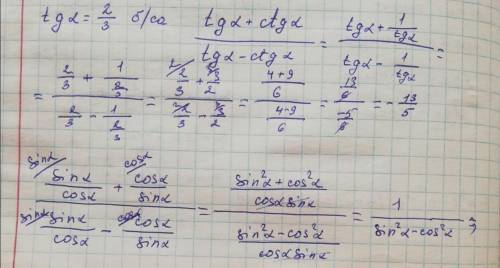 tgα = 2/3 б/са (tgα + ctgα)/(tgα - ctgα) = (tgα + 1/tgα)/(tgα - 1/tgα) =
= (2/3 + 1/(2/3))/(2/3 - 1/(2/3)) = (2/3 + 3/2)/(2/3 - 3/2) = ((4+9)/6)/((4-9)/6) = (13/6)/(-5/6) = -13/5
(sinα/cosα + cosα/sinα)/(sinα/cosα - cosα/sinα) = ((sin²α + cos²α)/(cosα sinα))/((sin²α - cos²α)/(cosα sinα)) = 1/(sin²α - cos²α) ;